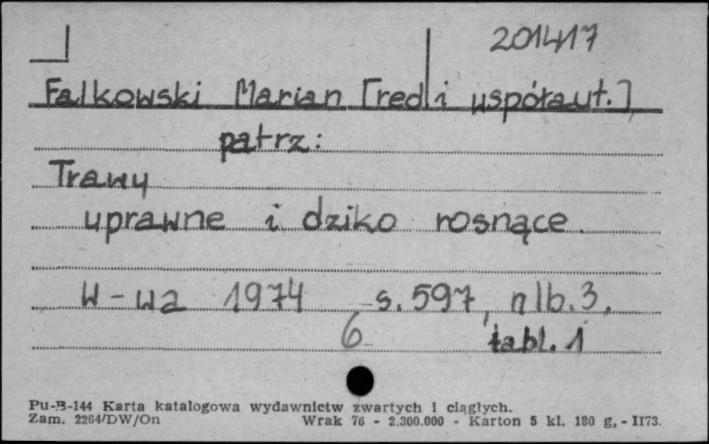 201417
Falkowski Marian [red i współaut.]
patrz:
Trawy
uprawne i dziko rosnące.
W-wa 1974 s. 597, nlb. 3,
6 tabl. 1
Pu-B-144 Karta katalogowa wydawnictw zwartych i ciągłych.
Zam. 2264/DW/On Wrak 76 - 2.300.000 - Karton 5 kl. 180 g, - II73.